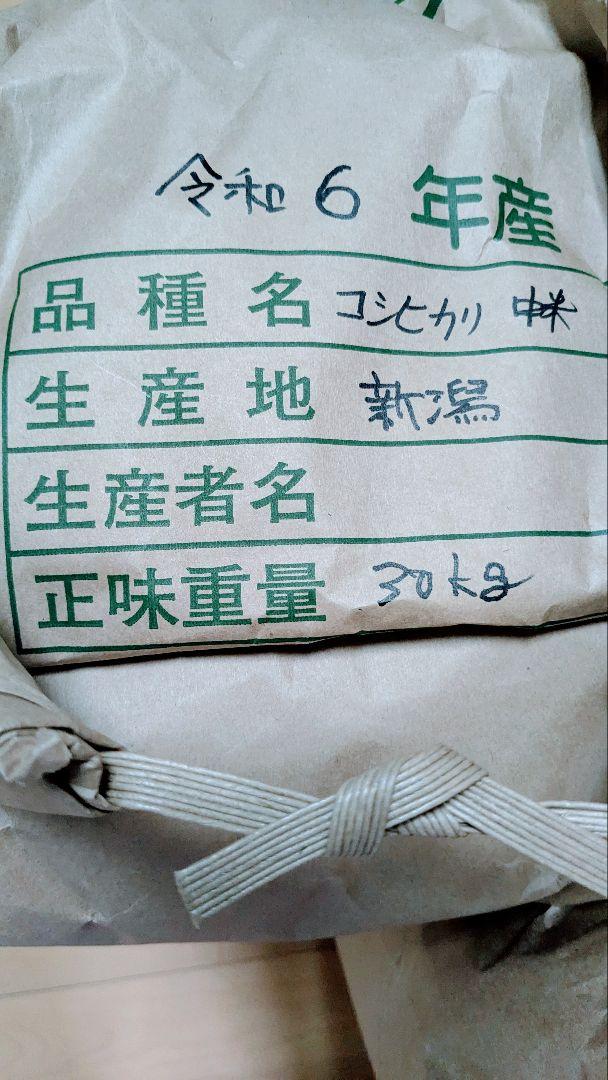 令和 6 年産
品種名 コシヒカリ 中米
生産地 新潟
生産者名
正味重量 30kg